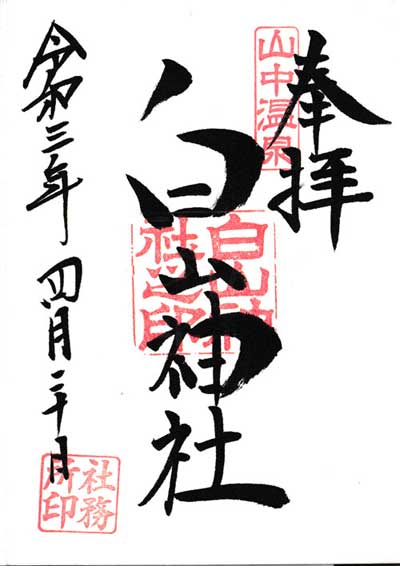 奉拝
山中温泉
白山神社
白山神
社之印
令和三年四月二十日
社務
所印